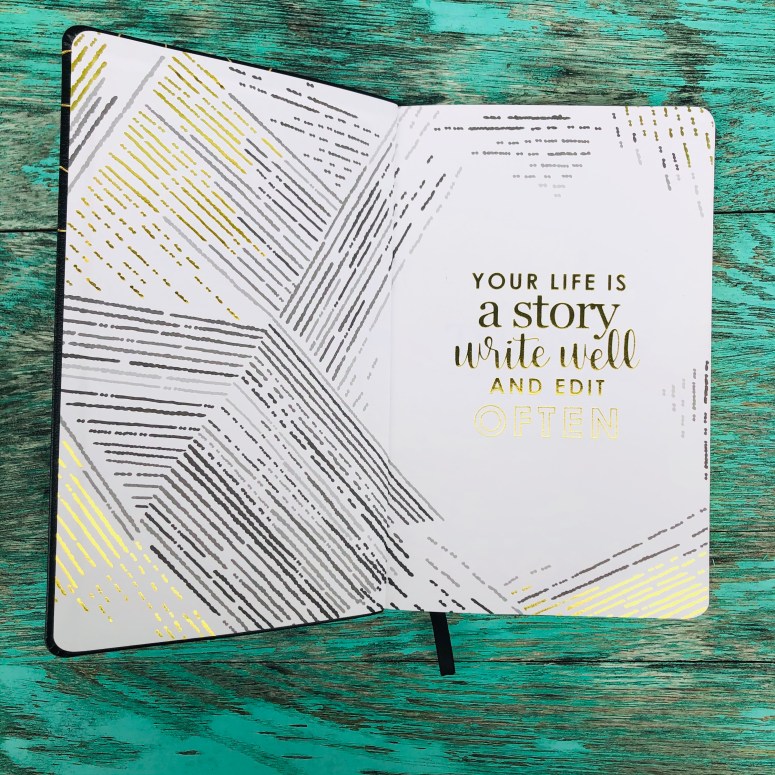 YOUR LIFE IS
a story
write well
AND EDIT
OFTEN